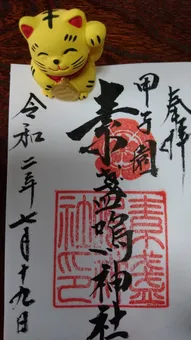 奉拝
甲子園
素盞嗚神社
令和二年七月十九日
素盞